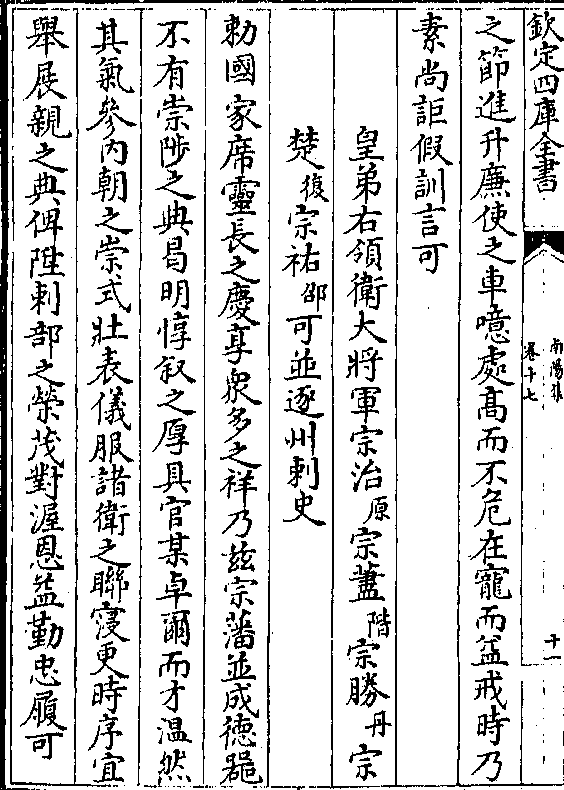 欽定四庫全書
南陽集
卷十七
十一
之節進升廉使之車噫處高而不危在寵而益戒時乃
素尚詎假訓言可
皇弟右領衛大將軍宗治原宗藎階宗勝丹宗
楚復宗祐邵可並逐州刺史
勅國家席靈長之慶享衆多之祥乃兹宗藩並成德器
不有崇陟之典曷明惇叙之厚具官某卓爾而才温然
其氣參内朝之崇式壯表儀服諸衛之聯寖更時序宜
舉展親之典俾陞刺部之榮茂對渥恩益勤忠履可